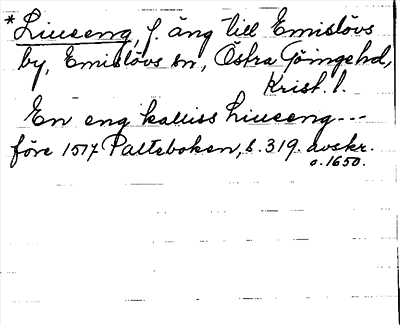 *Liuseng, f. äng till Emislövs
by, Emislövs sn, Östra Göingehd,
Krist. l.
En eng kalliss Liuseng---
före 1517 Palteboken, s. 319. avskr.
o. 1650.